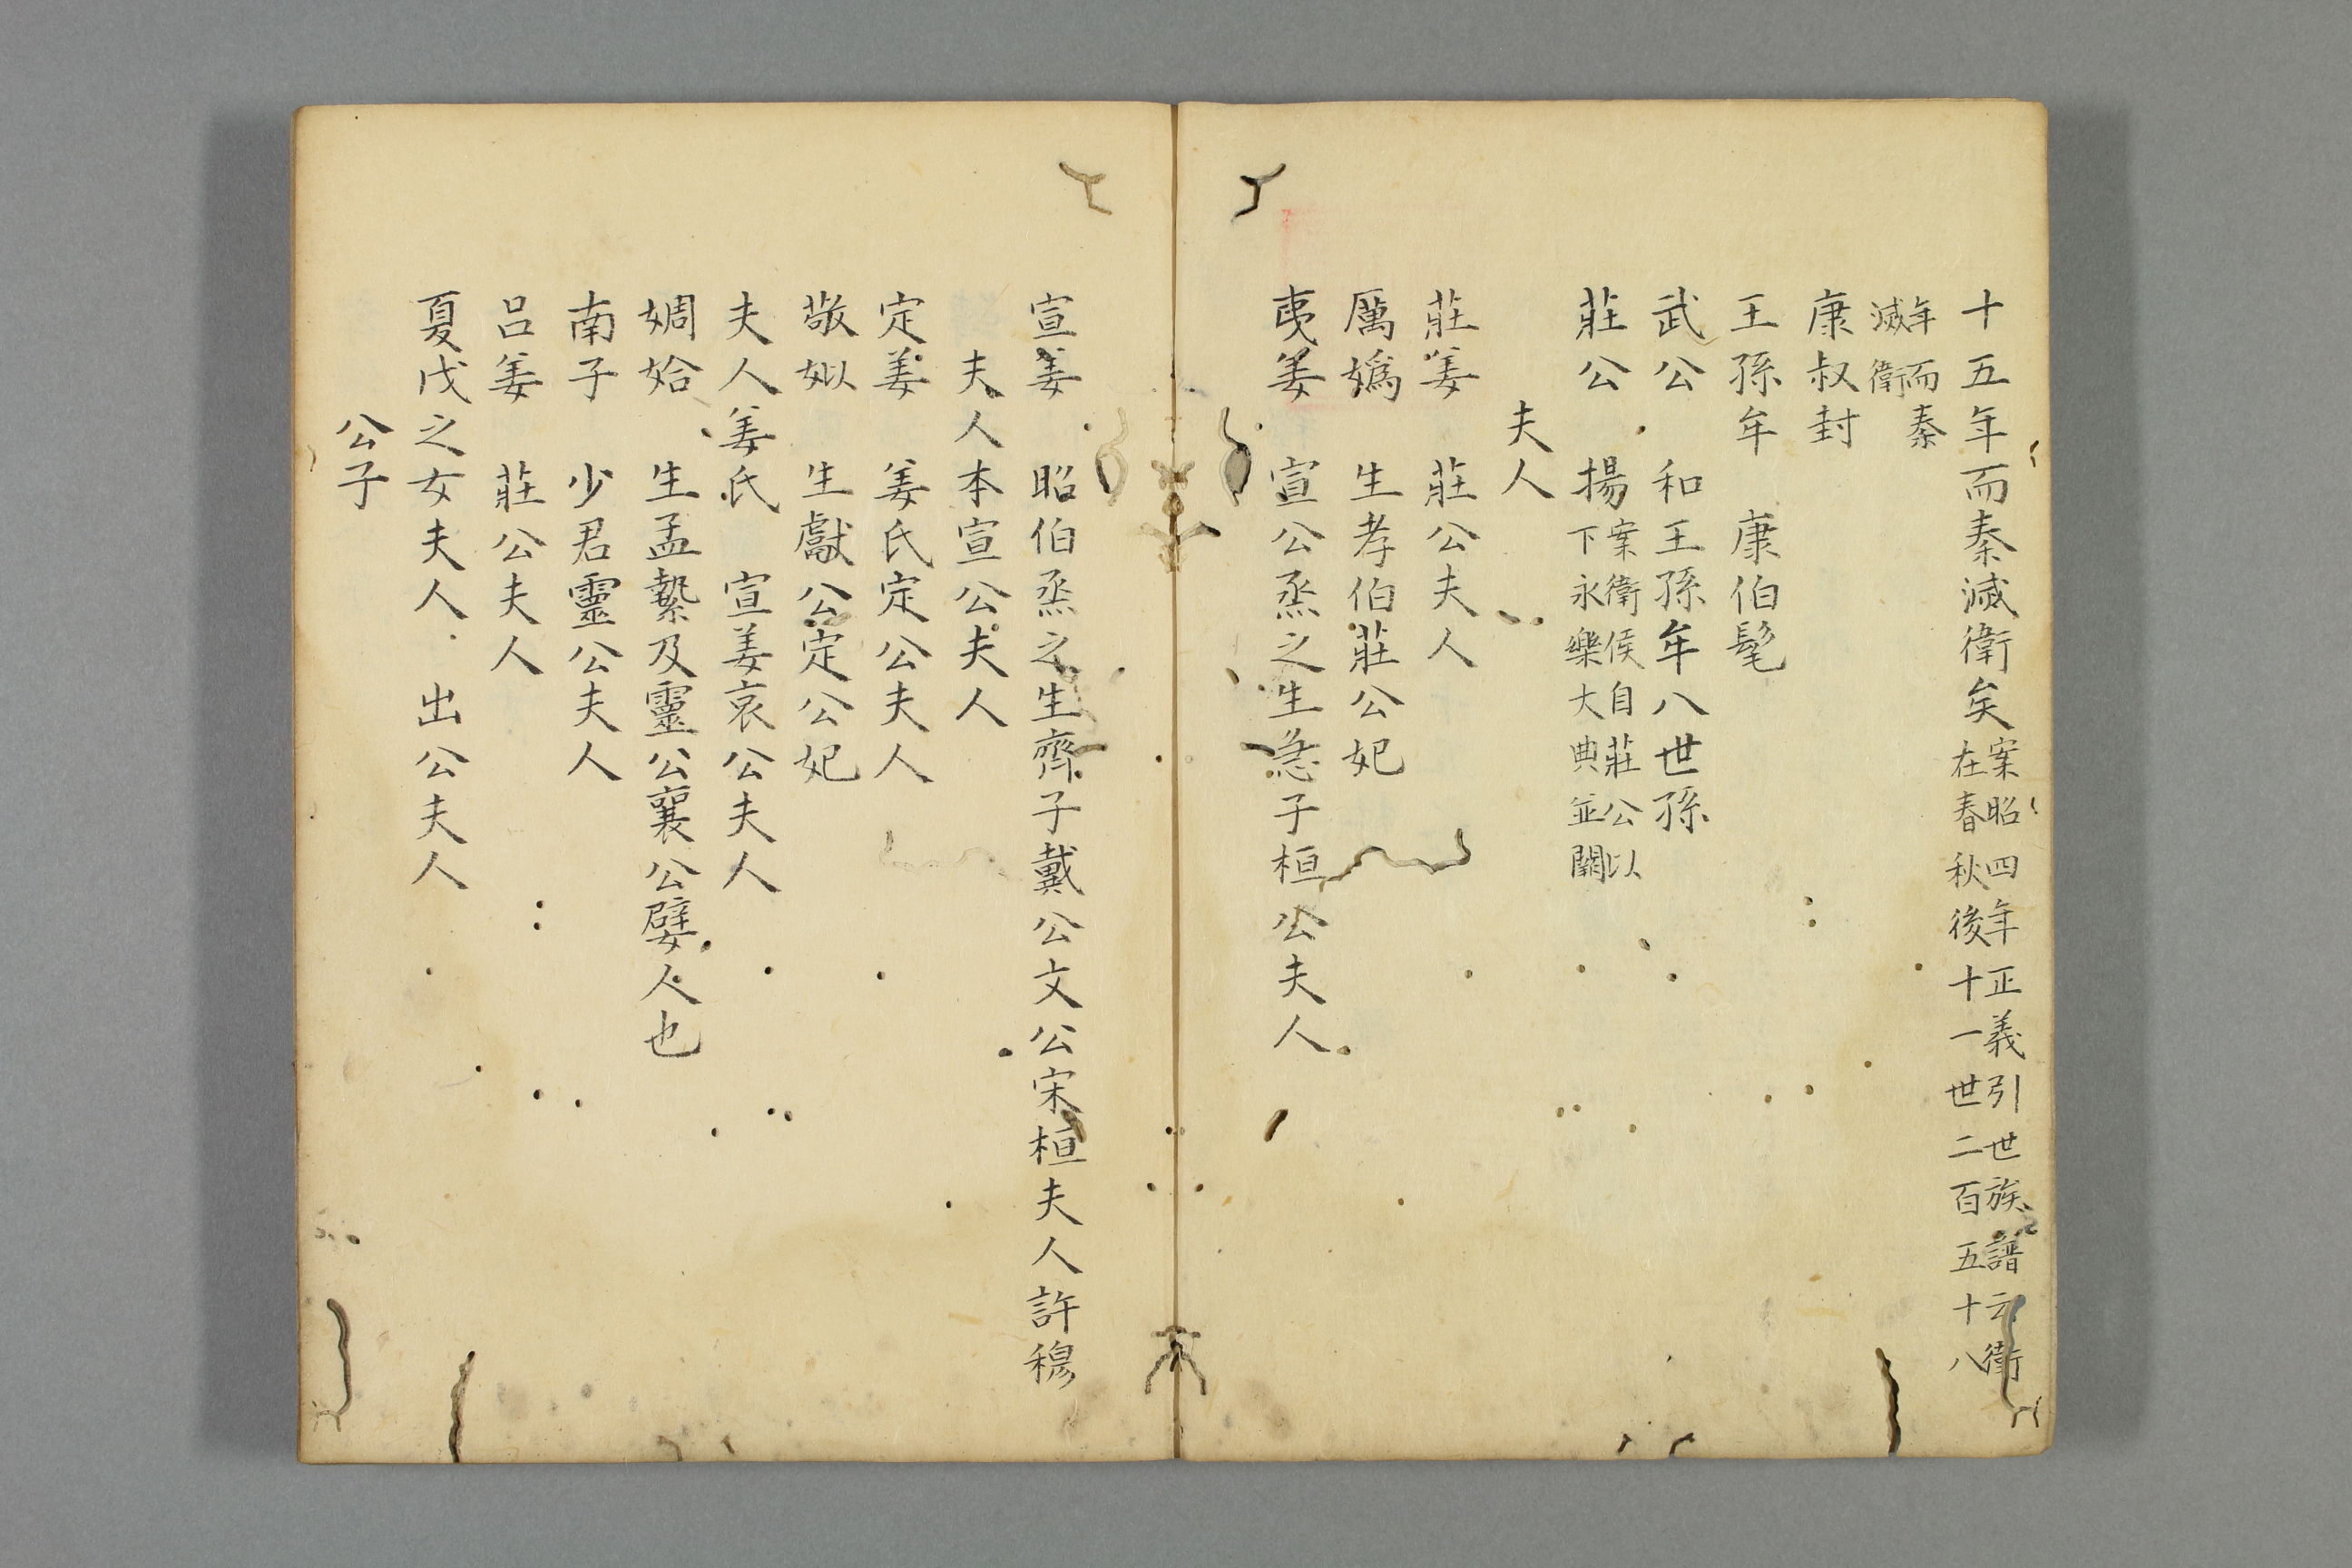 十五年而秦滅衛矣案昭四年正義引世族譜云衛在春秋後十一世二百五十八
年而秦滅衛
康叔封
王孫牟　康伯髦
武公　和王孫牟八世孫
莊公　揚案衛侯自莊公以下永樂大典並闕
夫人
莊姜　莊公夫人
厲嬀　生孝伯莊公妃
夷姜　宣公烝之生急子桓公夫人
宣姜　昭伯烝之生齊子戴公文公宋桓夫人許穆
夫人本宣公夫人
定姜　姜氏定公夫人
敬姒　生獻公定公妃
夫人姜氏　宣姜哀公夫人
婤姶　生孟縶及靈公襄公嬖人也
南子　少君靈公夫人
呂姜　莊公夫人
夏戊之女夫人　出公夫人
公子